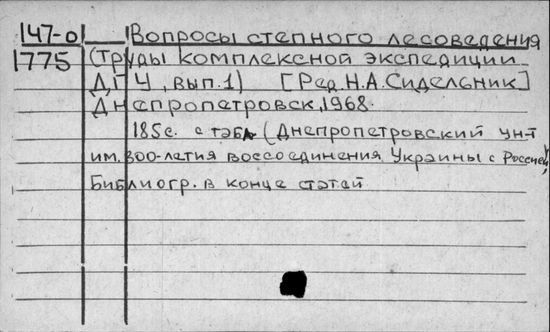 147-о Вопросы степного лесоведения
1775 (Труды комплексной экспедиции
ДГУ, вып.1) [Ред. Н.А. Сидельник]
Днепропетровск, 1968.
185с. с табл (Днепропетровский ун-т
им. 300-летия воссоединения Украины с Россией)
Библиогр. в конце статей